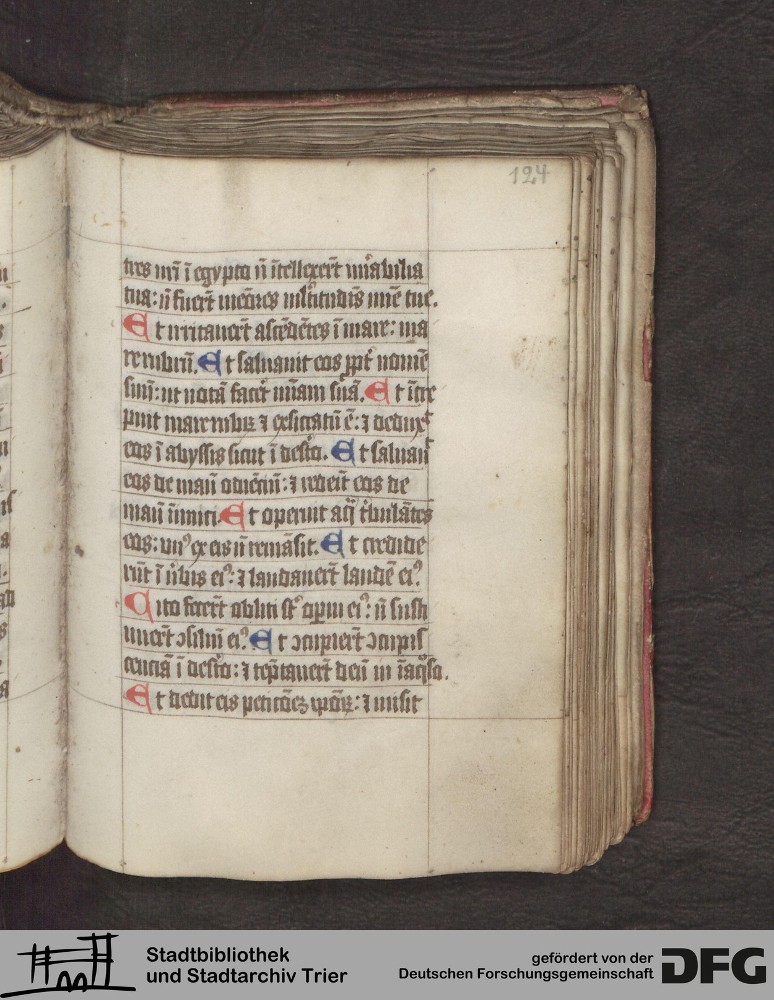 124
tres nr̄i ī egypto n̄ ītellexer̄t mirabilia
tua: n̄ fuer̄t memōres mltitudīs mīe tue.
Et irritauer̄t ascēdētes ī mare: ma
re rubrū. Et saluauit eos ppt̄ nomē
suū: ut notā facer̄ ... suā. Et īcre
puit mare rubrū ⁊ exsiccatū ē: ⁊ deduxͭ
eos ī abyssis sicut ī desͭo. Et saluauͭ
eos de manū odiētiū: ⁊ redeīt eos de
manū inimici. Et operuit aq̄ tͥbulātes
eos: unꝰ ex eis n̄ remāsit. Et credide
rūt ī ūbis eiꝰ: ⁊ laudauer̄t laudē eiꝰ.
Cito fecer̄t obliti sͭ opum eiꝰ: n̄ susti
nuer̄t ꝯsiliū eiꝰ. Et ꝯcupier̄t ꝯcupis
cenciā ī desͭo: ⁊ tēptauer̄t deū in īaq̊so.
Et dedit eis peticōēꝫ ipōꝝ: ⁊ misit
Stadtbibliothek
und Stadtarchiv Trier
gefördert von der
Deutschen Forschungsgemeinschaft
DFG